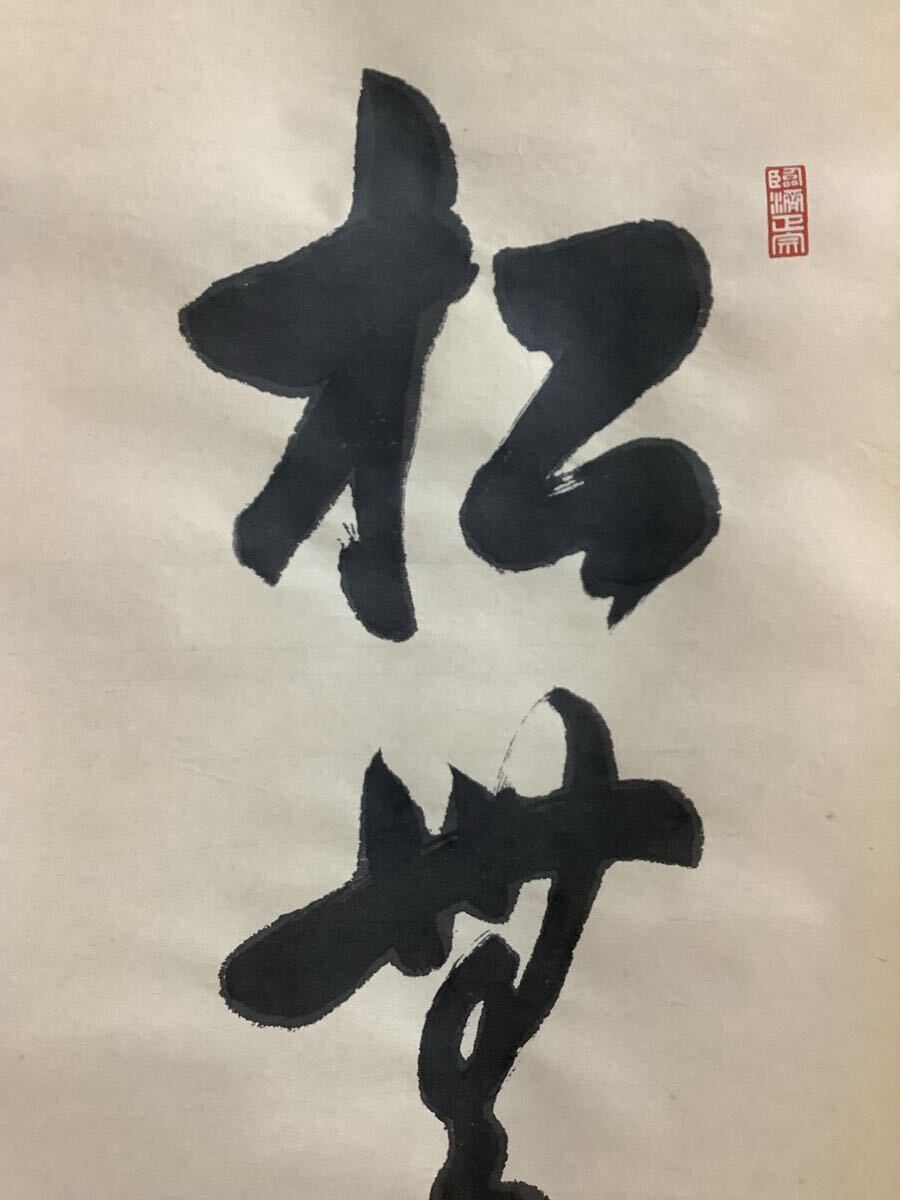 臨濟正宗
松無